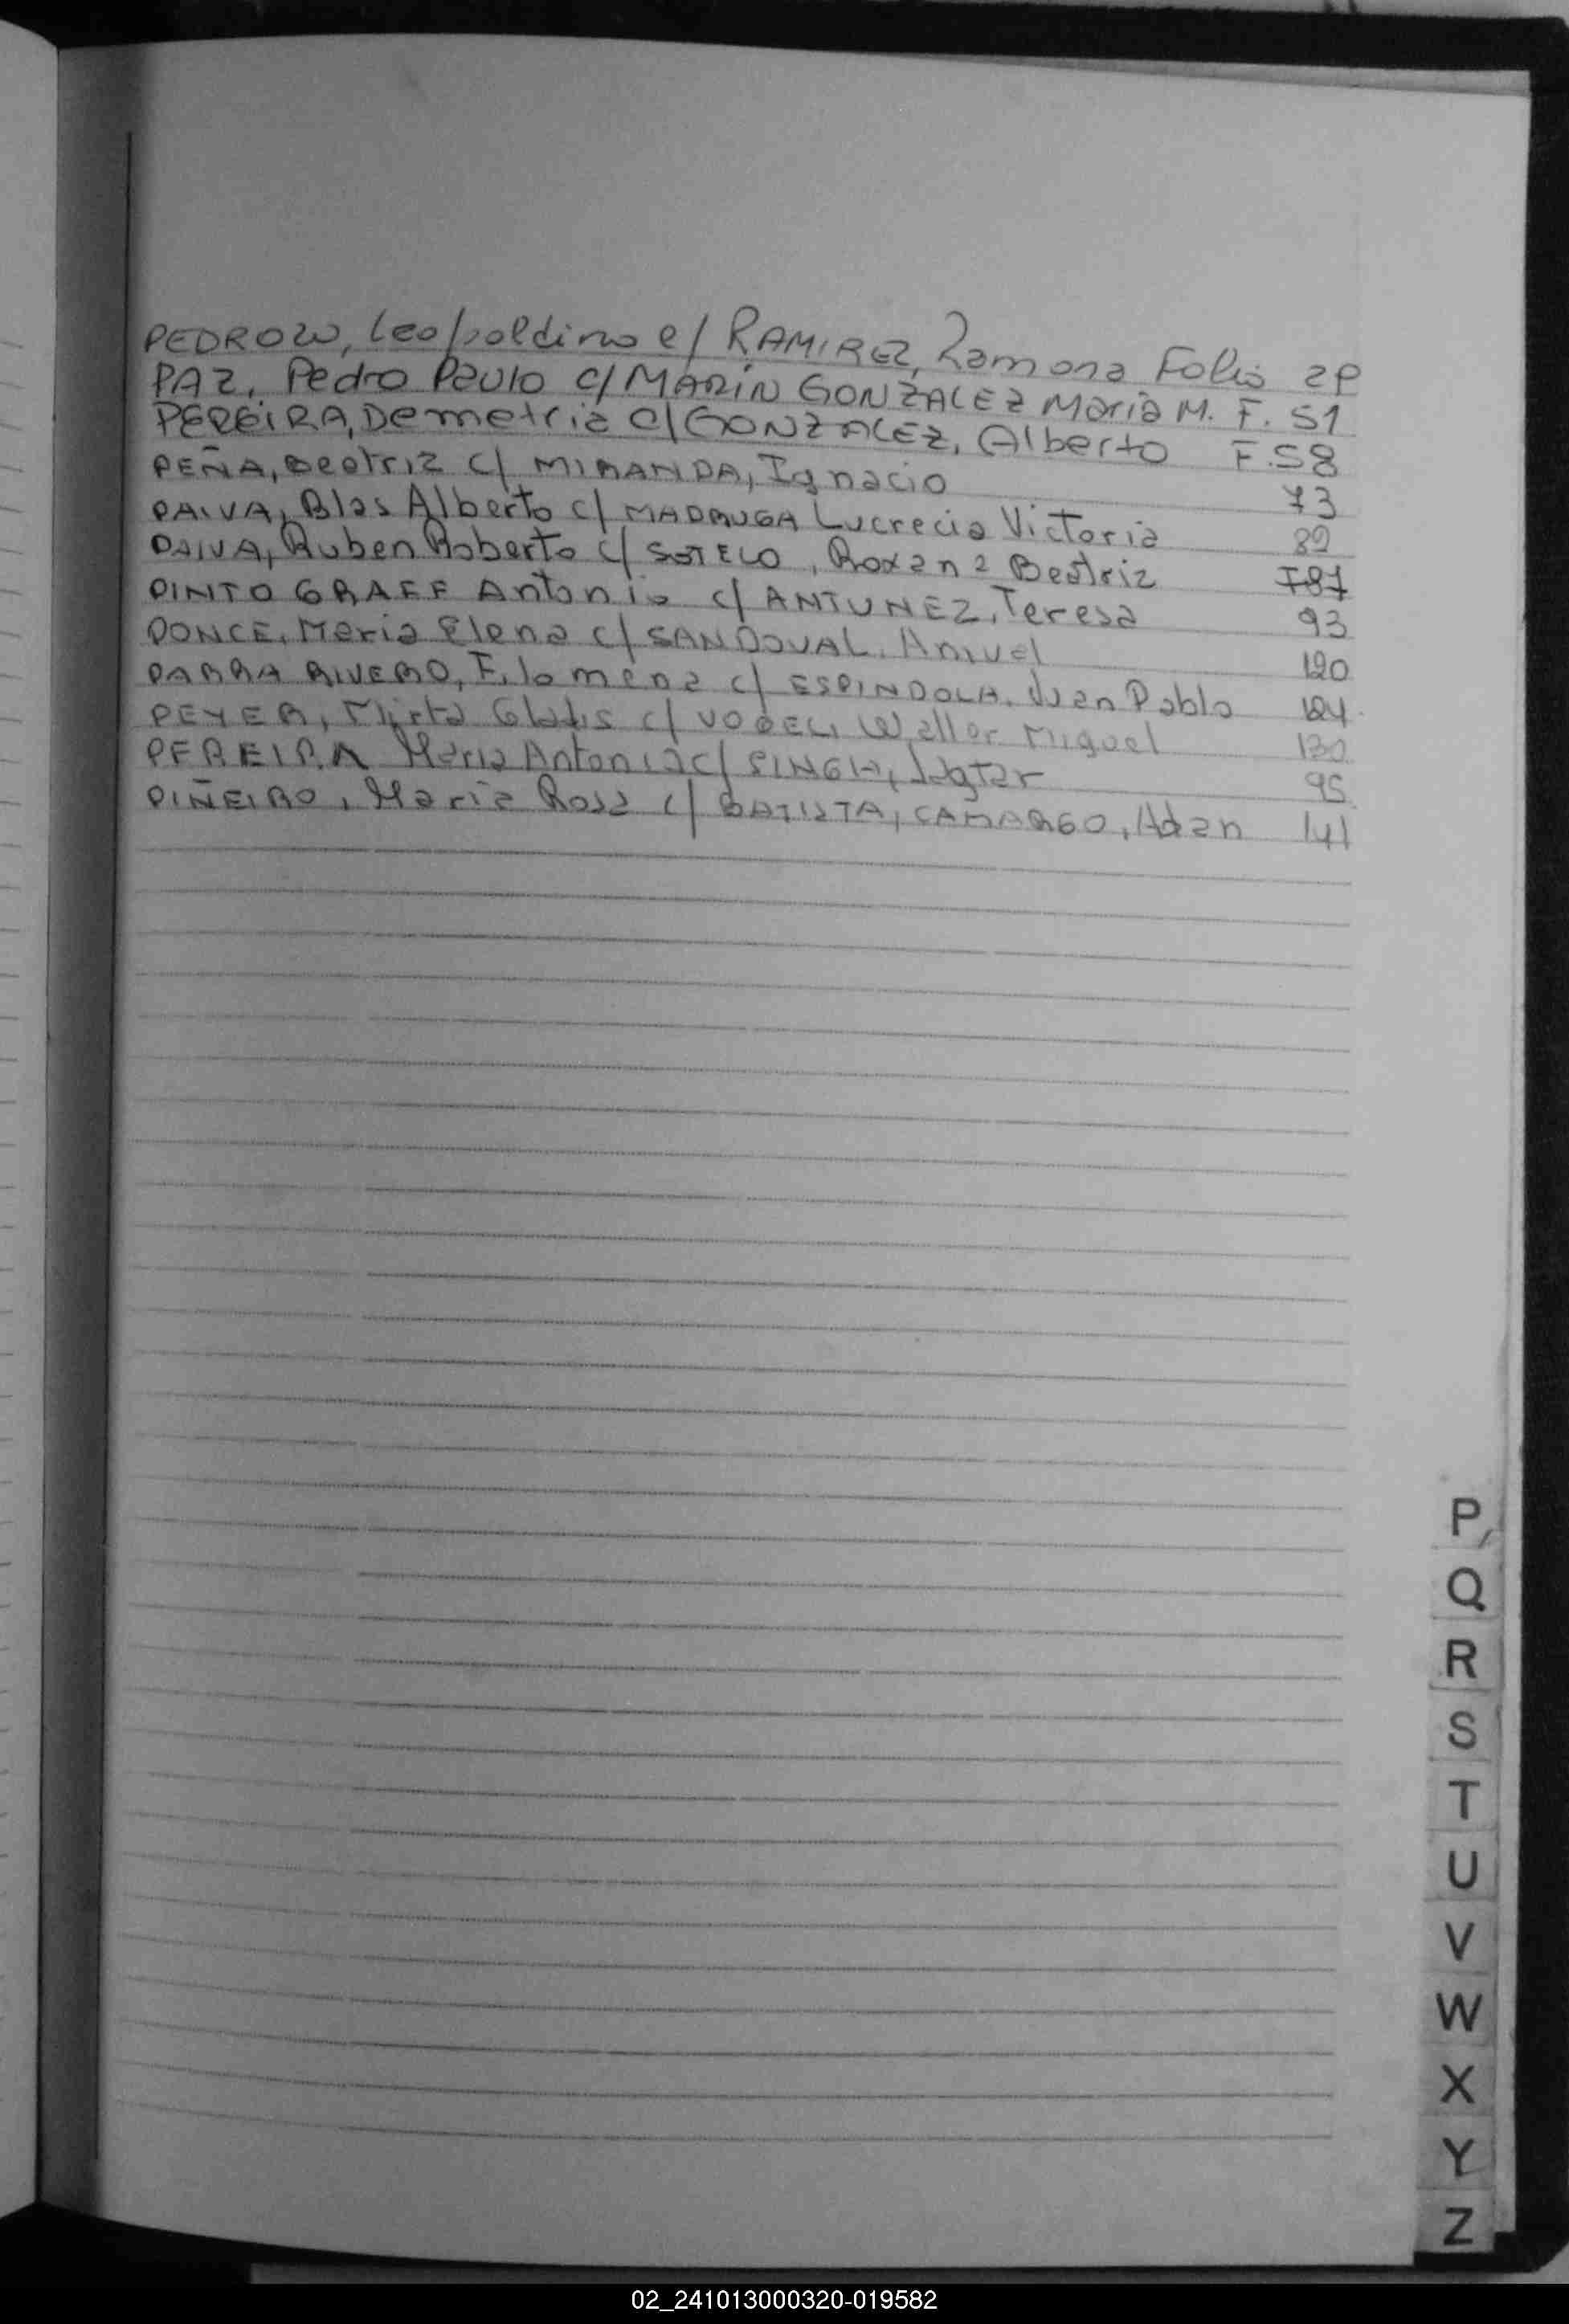 PEDROZO, Leopoldino c/ RAMIREZ, Ramona Folio
PAZ, Pedro Paulo c/ MARÍN GONZALEZ María M. F. 51
PEREIRA, Demetria c/ GONZALEZ, Alberto F. 58
PEÑA, Beatriz c/ MIRANDA, Ignacio 73
PAIVA, Blas Alberto c/ MADRUGA Lucrecia Victoria 89
PAIVA, Ruben Roberto c/ SOTELO, Roxana Beatriz
PINTO GRAEF Antonio c/ ANTUNEZ, Teresa 93
PONCE, Maria Elena c/ SANDOVAL, 120
PARRA RIVERO, Filomena c/ ESPINDOLA, Juan Pablo 124
PEYER, Mirta Gladis c/ VOGEL, Walter Miguel 130
PEREIRA Maria Antonia c/ SINGH, 95
PIÑEIRO, Maria Rosa c/ BATISTA, CAMARGO, Adan 141
P
Q
R
S
T
U
V
W
X
Y
Z
02_241013000320-019582